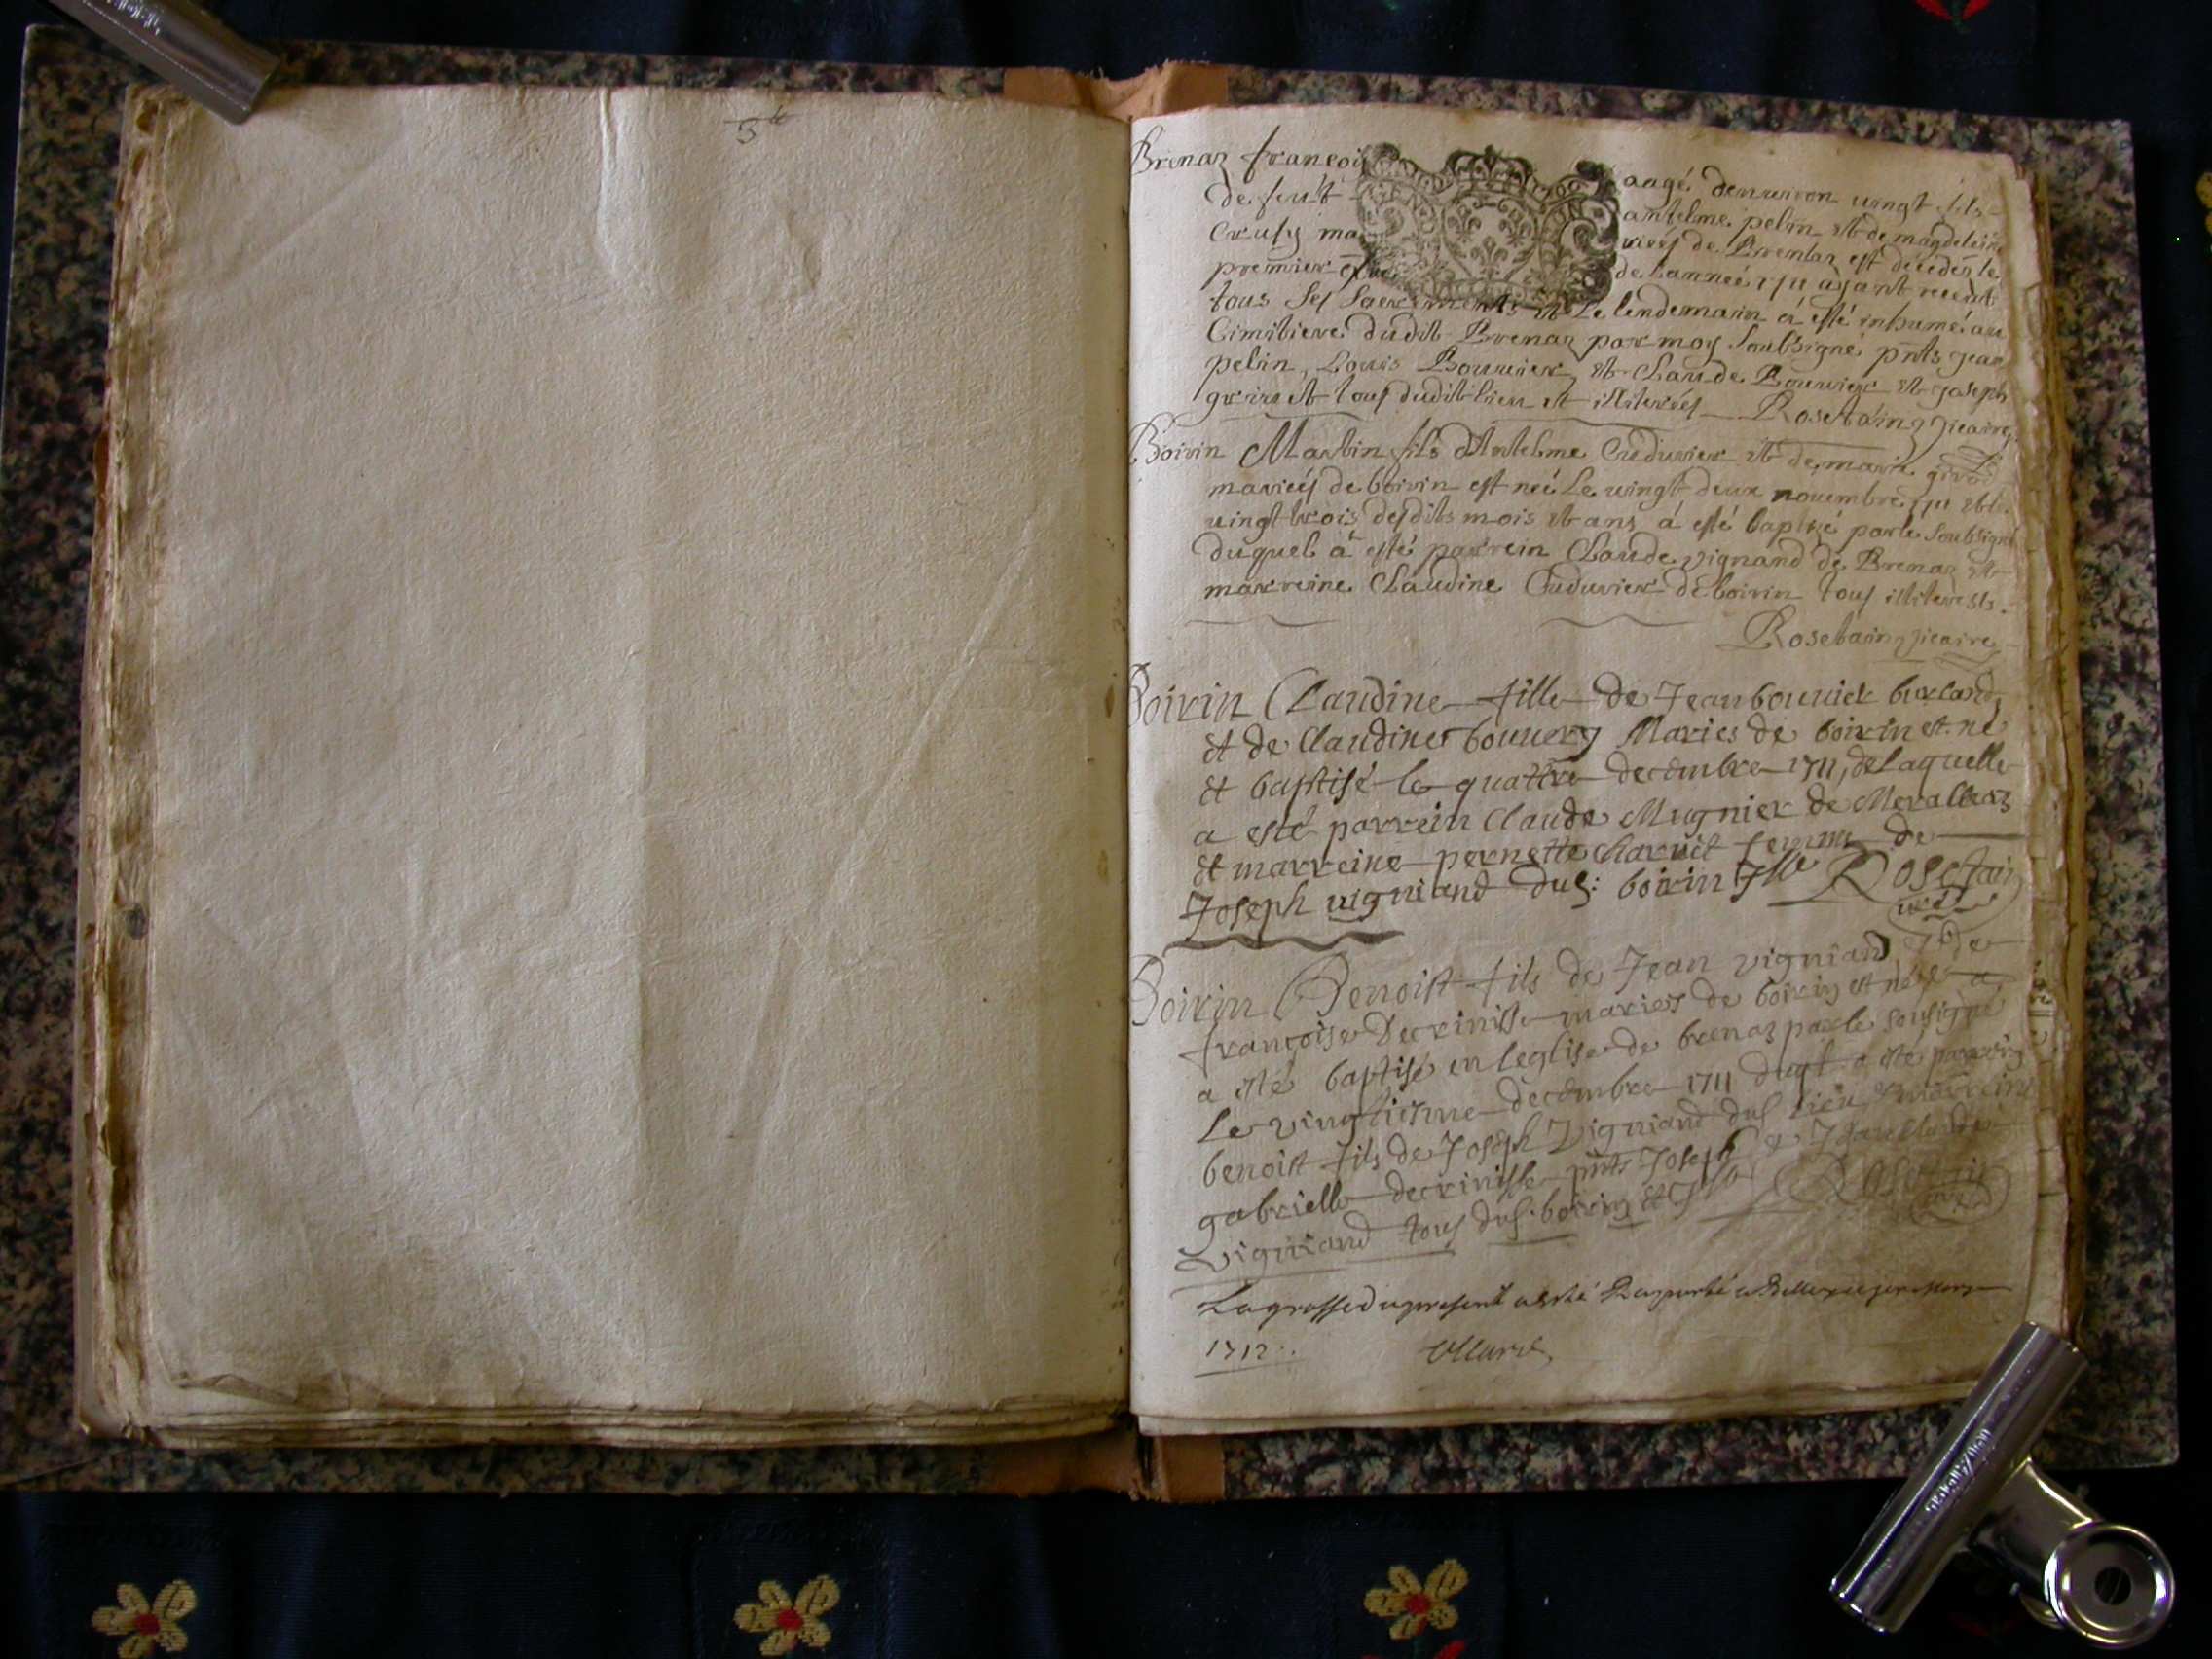 Brenaz françois aagé denuiron uingt fils
de feu antelme pelin et de magdeleine
Crusy ma riéś de Brenaz est decedez le
premier de lanneé 1711 ajant receut
tous ses sacrements et Le lendemain á esté inhumé au
Cimitiere dudit Brenaz par moy soubsigné pnts jean
pelin, Louis Bouuier et Claude Bouuier et joseph
tous dudit lieu et illiterés Rosetaing vicaire
Boirin Martin fils d'Antelme Cudurier et de marie
marieś de boirin est né Le uingt deux nouembre 1711 et le
uingt trois desdits mois et ans á esté baptisé par le soubsigné
duquel á esté parrein Claude vignand de Brenaz et
marreine Claudine Cudurier de boirin tous illiterests.
Rosetaing vicaire
Boirin Claudine fille de Jean bouuier
et de Claudine bouuery Maries de boirin est né
et baptisé le quattre decembre 1711, de Laquelle
a esté parrein Claude Mugnier de
et marreine pernette charuet femme de
Joseph uigniand dud: boirin Jlle Rosetain
uic
Boirin Benoist fils de Jean vigniand & de
françoise Decrinisse maries de boirin est né &
a esté baptisé en leglise de brenaz par le sousigné
Le vingtiesme decembre 1711 duql a esté parrein
benoist fils de Joseph Vigniand dud lieu & marreine
gabrielle decrinisse pnts Joseph & Jean claude
Vigniand tous dud. boirin et Rosettain
La grosse du present a esté
1712.